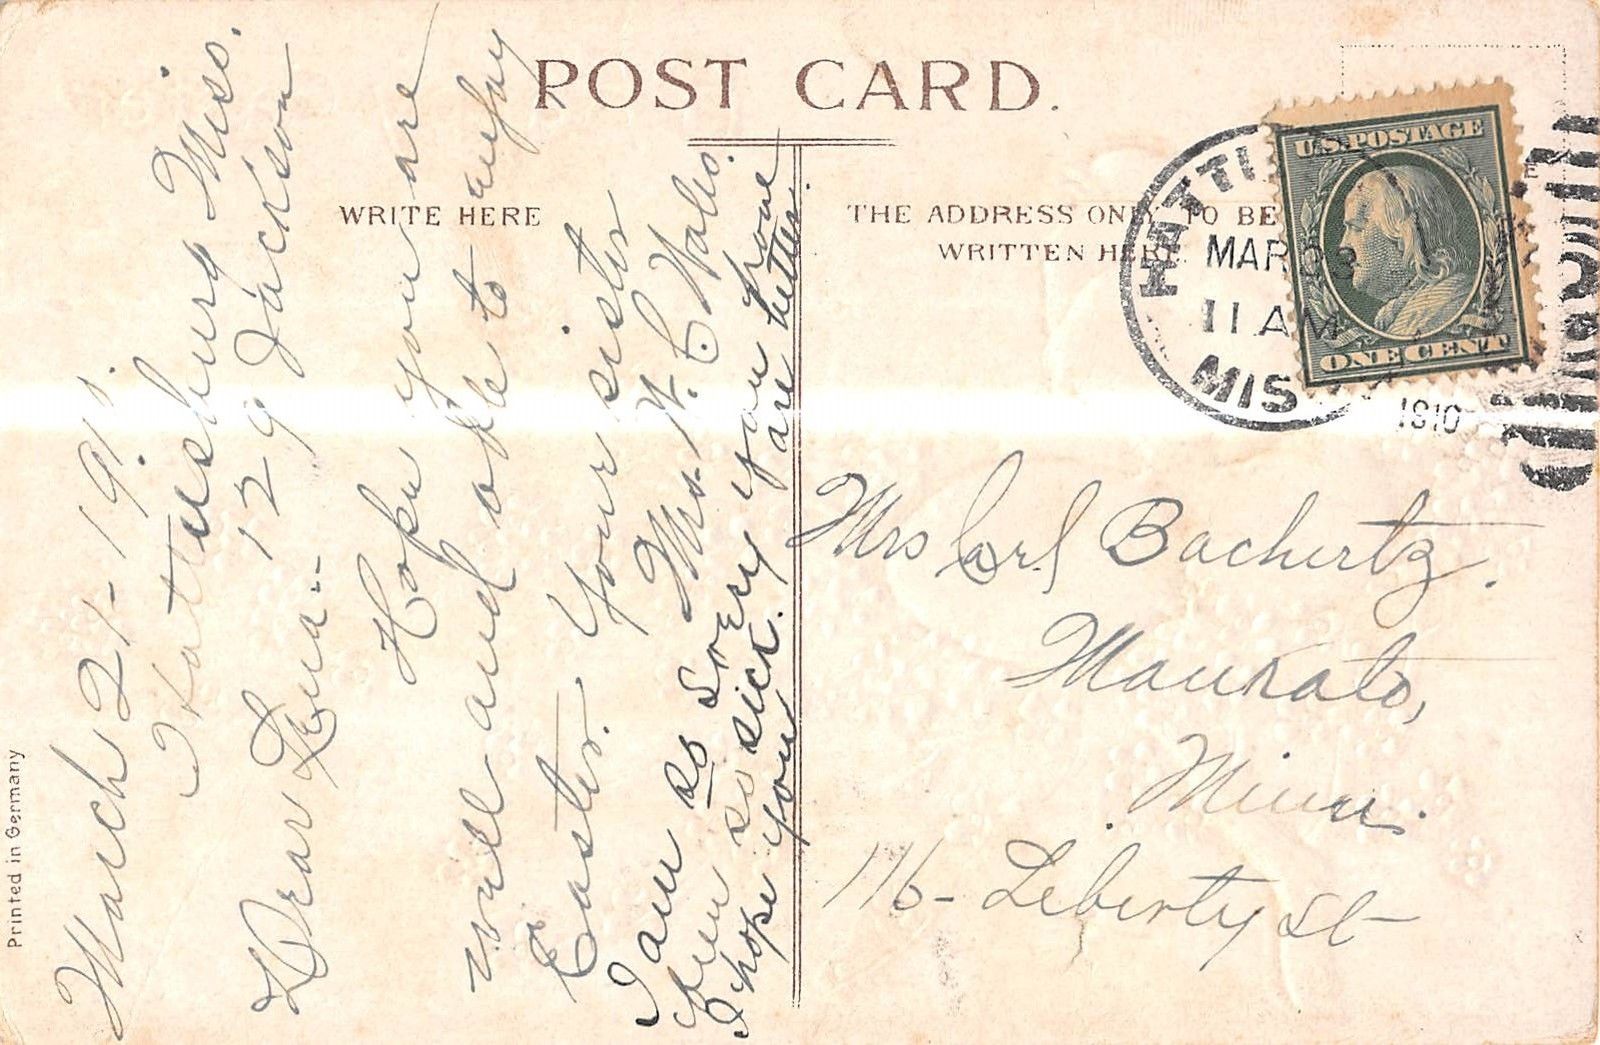 POST CARD.
WRITE HERE
THE ADDRESS ONLY TO BE
WRITTEN HERE.
U.S. POSTAGE
ONE CENT
HATTI
MAR
11 AM
MISS
1910
Mrs Carl Bachertz.
Mankato,
Minn.
116- Liberty St
March 21-1910.
Hattiesburg Miss.
129 Jackson
Dear Lena--
Hope you are
well and able to enjoy
Easter. Your sister
Mrs. W. C. Walis.
I am so sorry you have
been so sick.
I hope you are better.
Printed in Germany